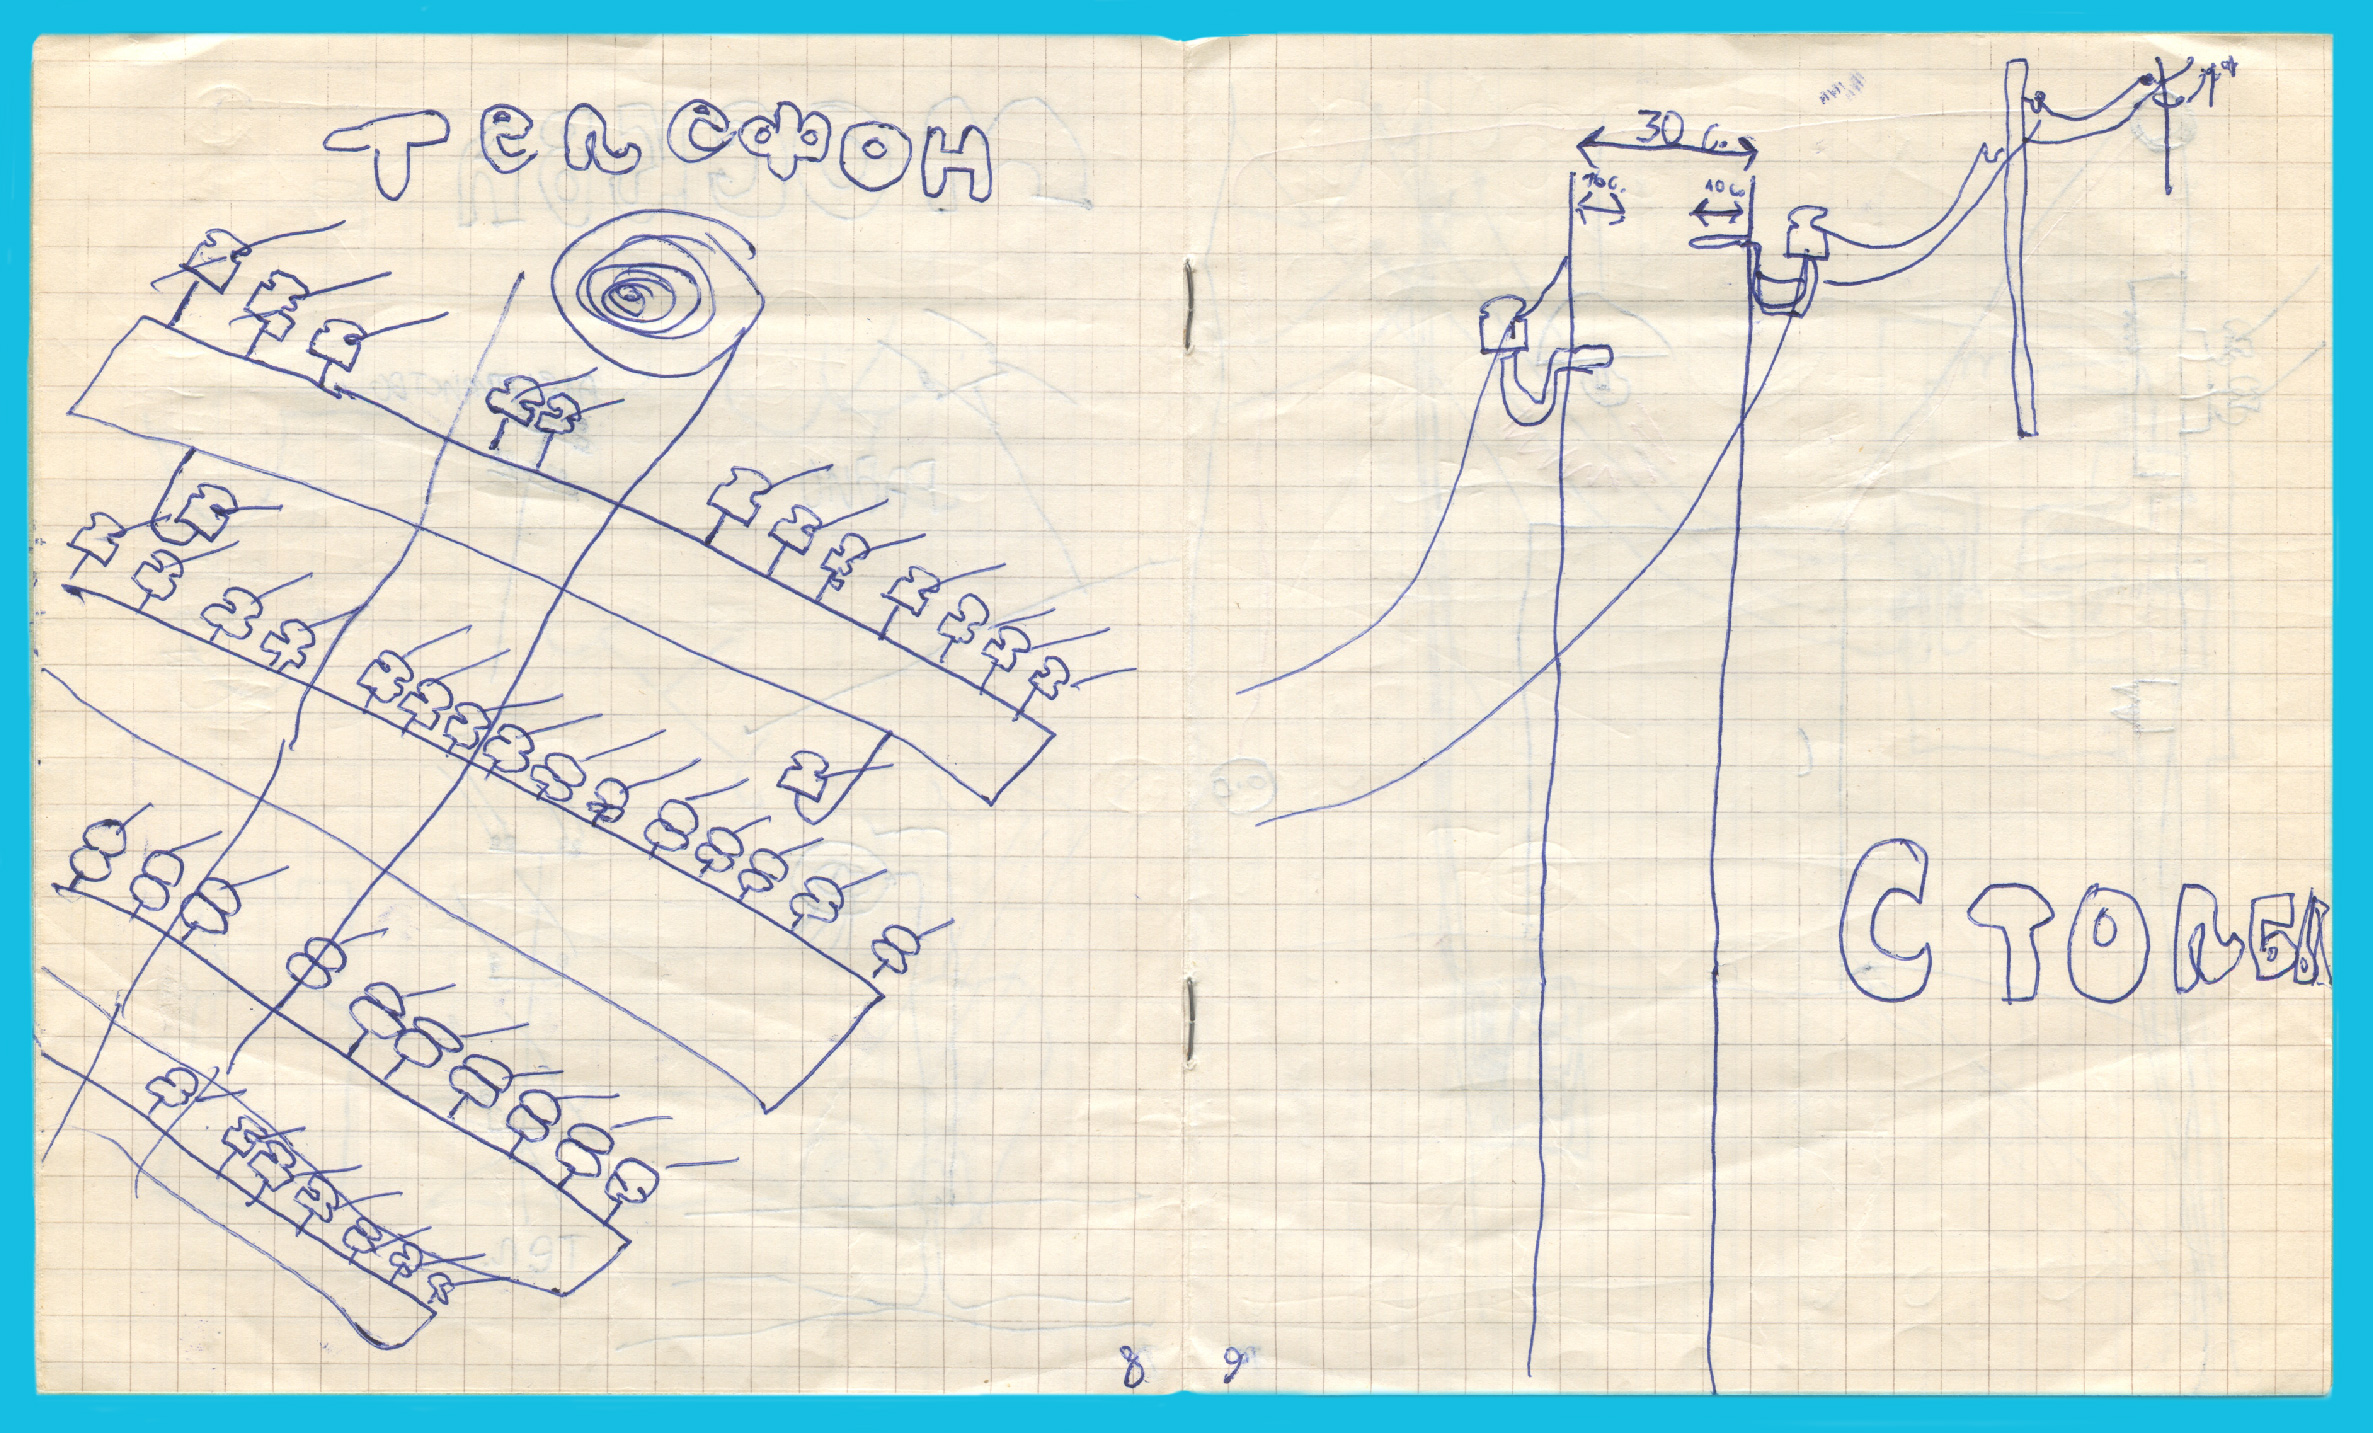 телефон
30 с.
10 с. 10 с.
столбы
8 9